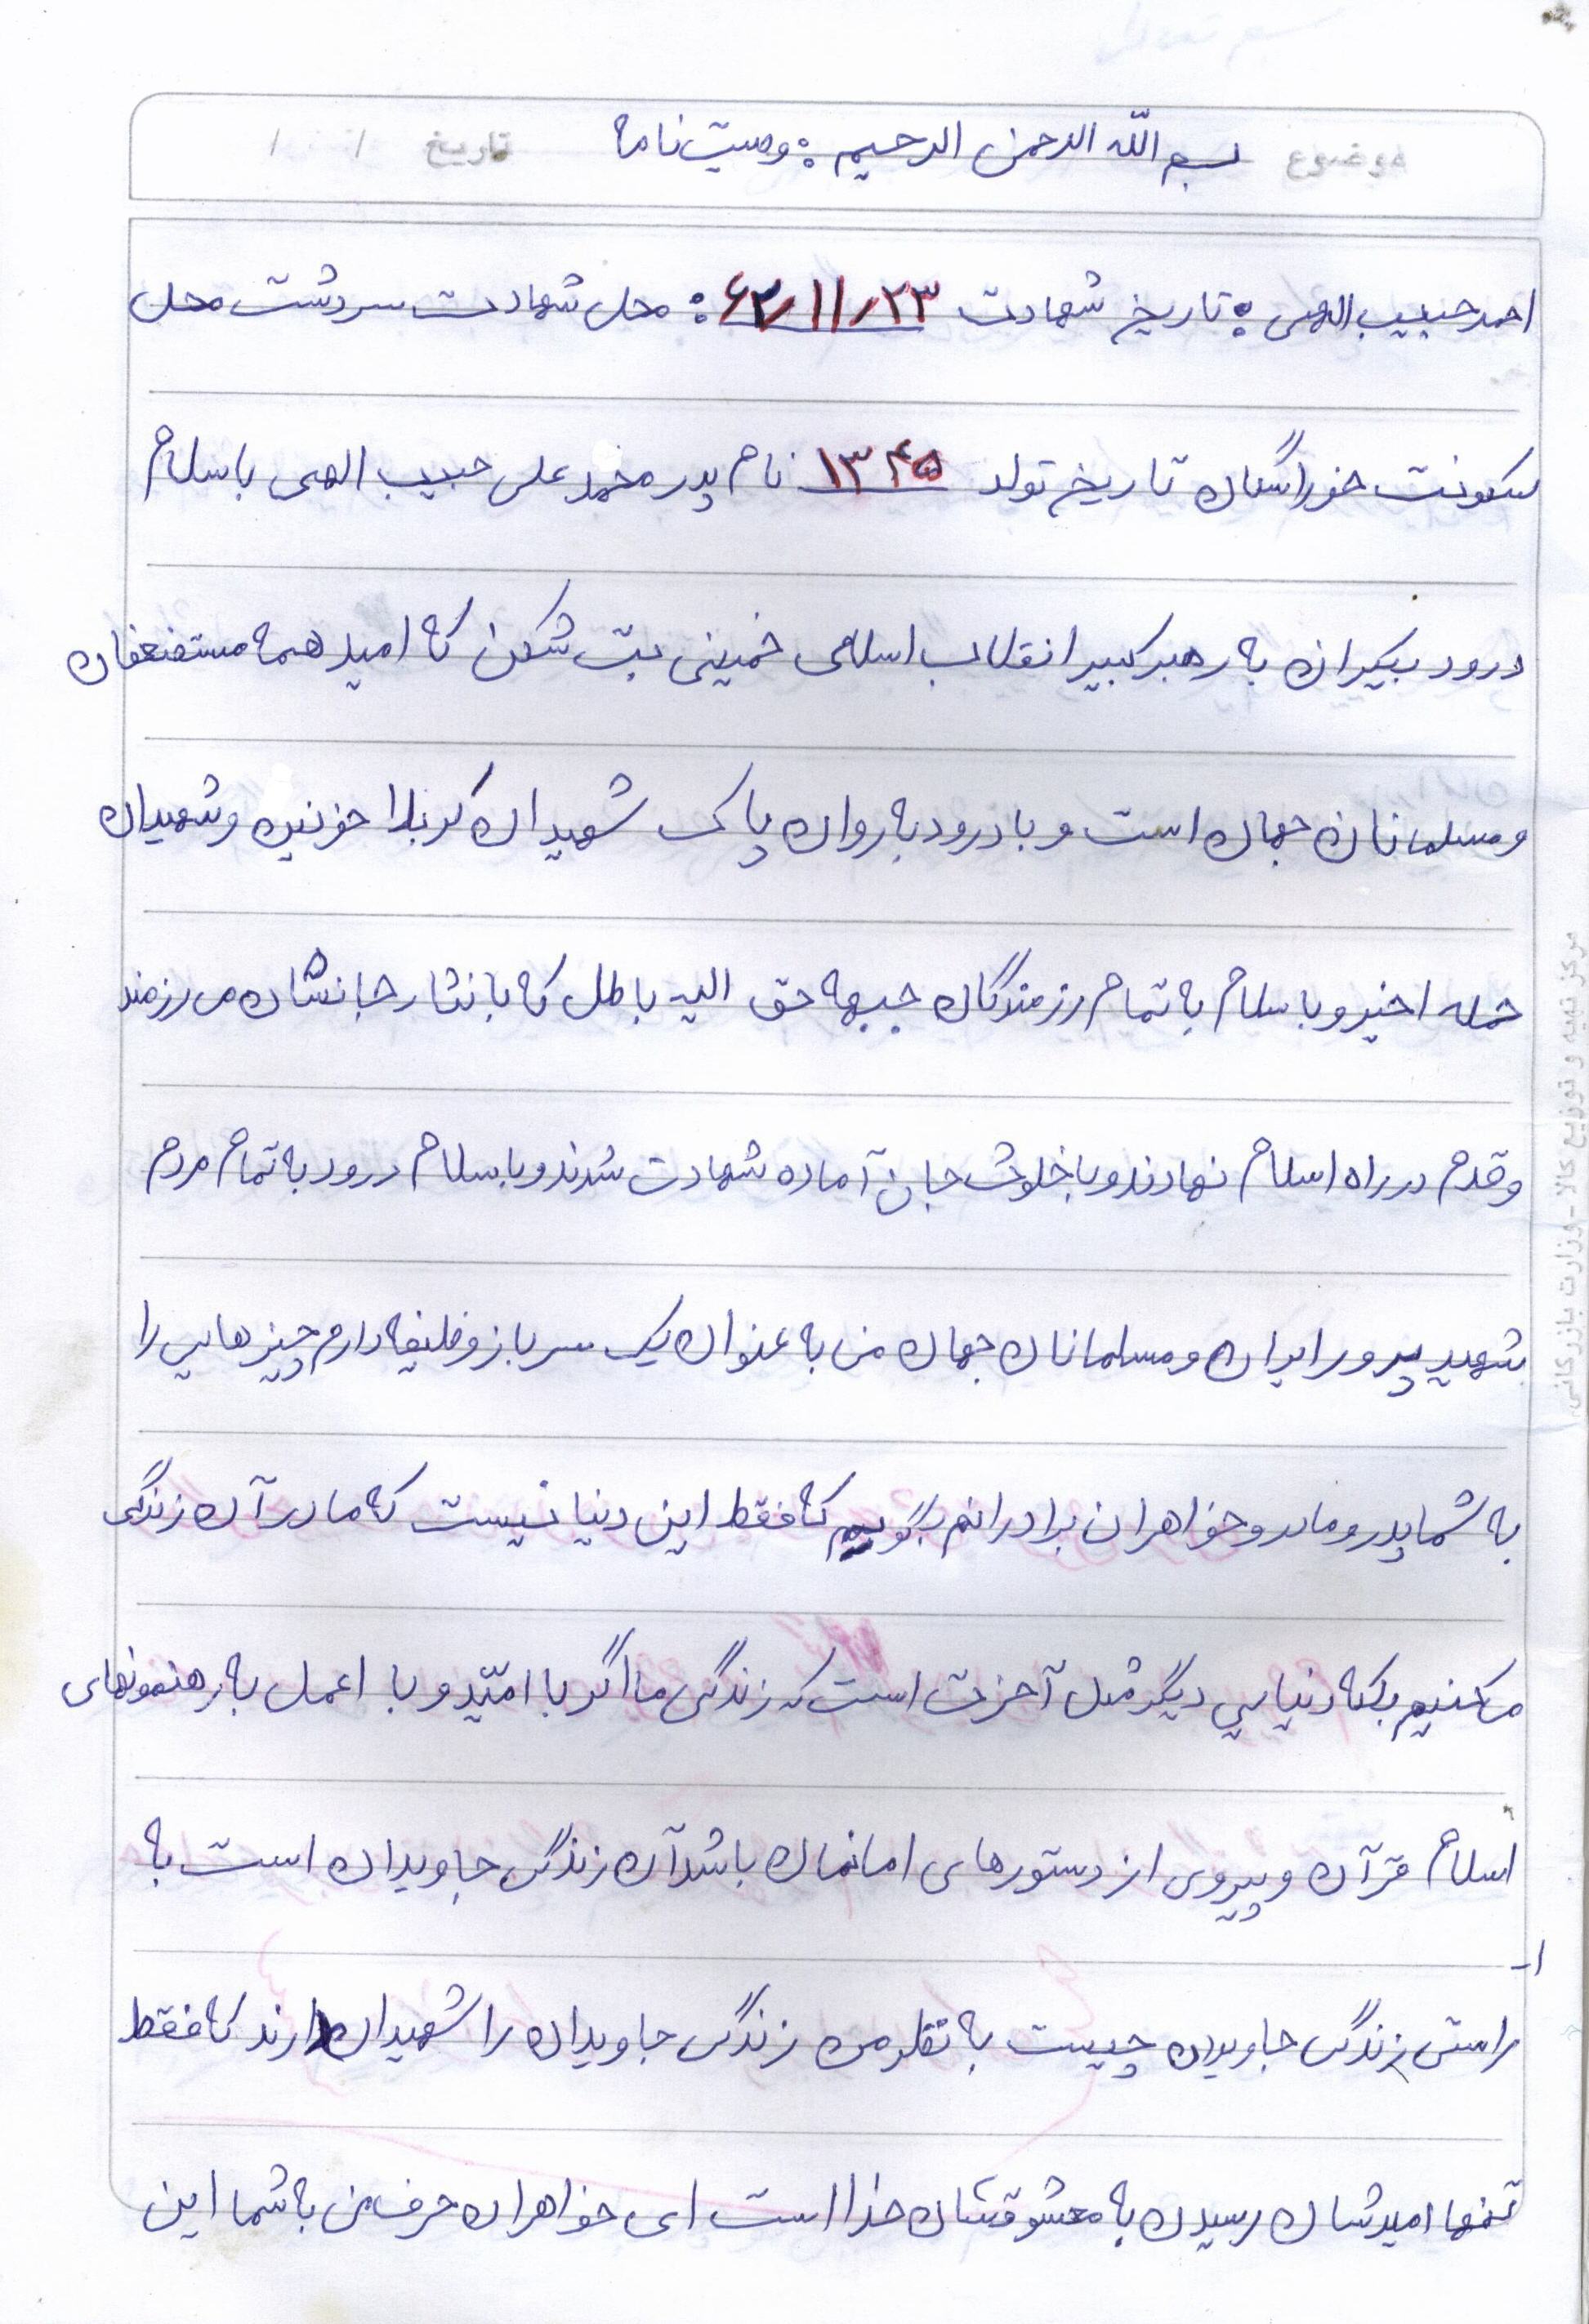 موضوع بسم الله الرحمن الرحیم : وصیت نامه تاریخ / /
احمد حبیب الهی : تاریخ شهادت ۶۲/۱۱/۲۳ : محل شهادت سردشت محل
سکونت خوراسگان تاریخ تولد ۱۳۴۵ نام پدر محمد علی حبیب الهی باسلام
درود بیکران به رهبر کبیر انقلاب اسلامی خمینی بت شکن که امید همه مستضعفان
و مسلمانان جهان است و با درود به روان پاک شهیدان کربلا خونین و شهیدان
حمله اخیر و با سلام به تمام رزمندگان جبهه حق الیه باطل که با نثار جانشان می رزمند
و قدم در راه اسلام نهادند و با خلوت جان آماده شهادت شدند و با سلام درود به تمام مردم
شهید پرور ایران و مسلمانان جهان من به عنوان یک سرباز وظیفه دارم چیزهایی را
به شما پدر و مادر و خواهران برادرانم بگویم که فقط این دنیا نیست که ما در آن زندگی
می کنیم بلکه دنیایی دیگر مثل آخرت است که زندگی ما اگر با امید و با اعمل به رهنمونهای
اسلام قرآن و پیروی از دستورهای امامان باشد آن زندگی جاویدان است به
۱-
راستی زندگی جاویدان چیست به نظر من زندگی جاویدان را شهیدان دارند که فقط
تنها امیدشان رسیدن به معشوقشان خدا است ای خواهران حرف من به شما این
مرکز تهیه و توزیع کالا - وزارت بازرگانی